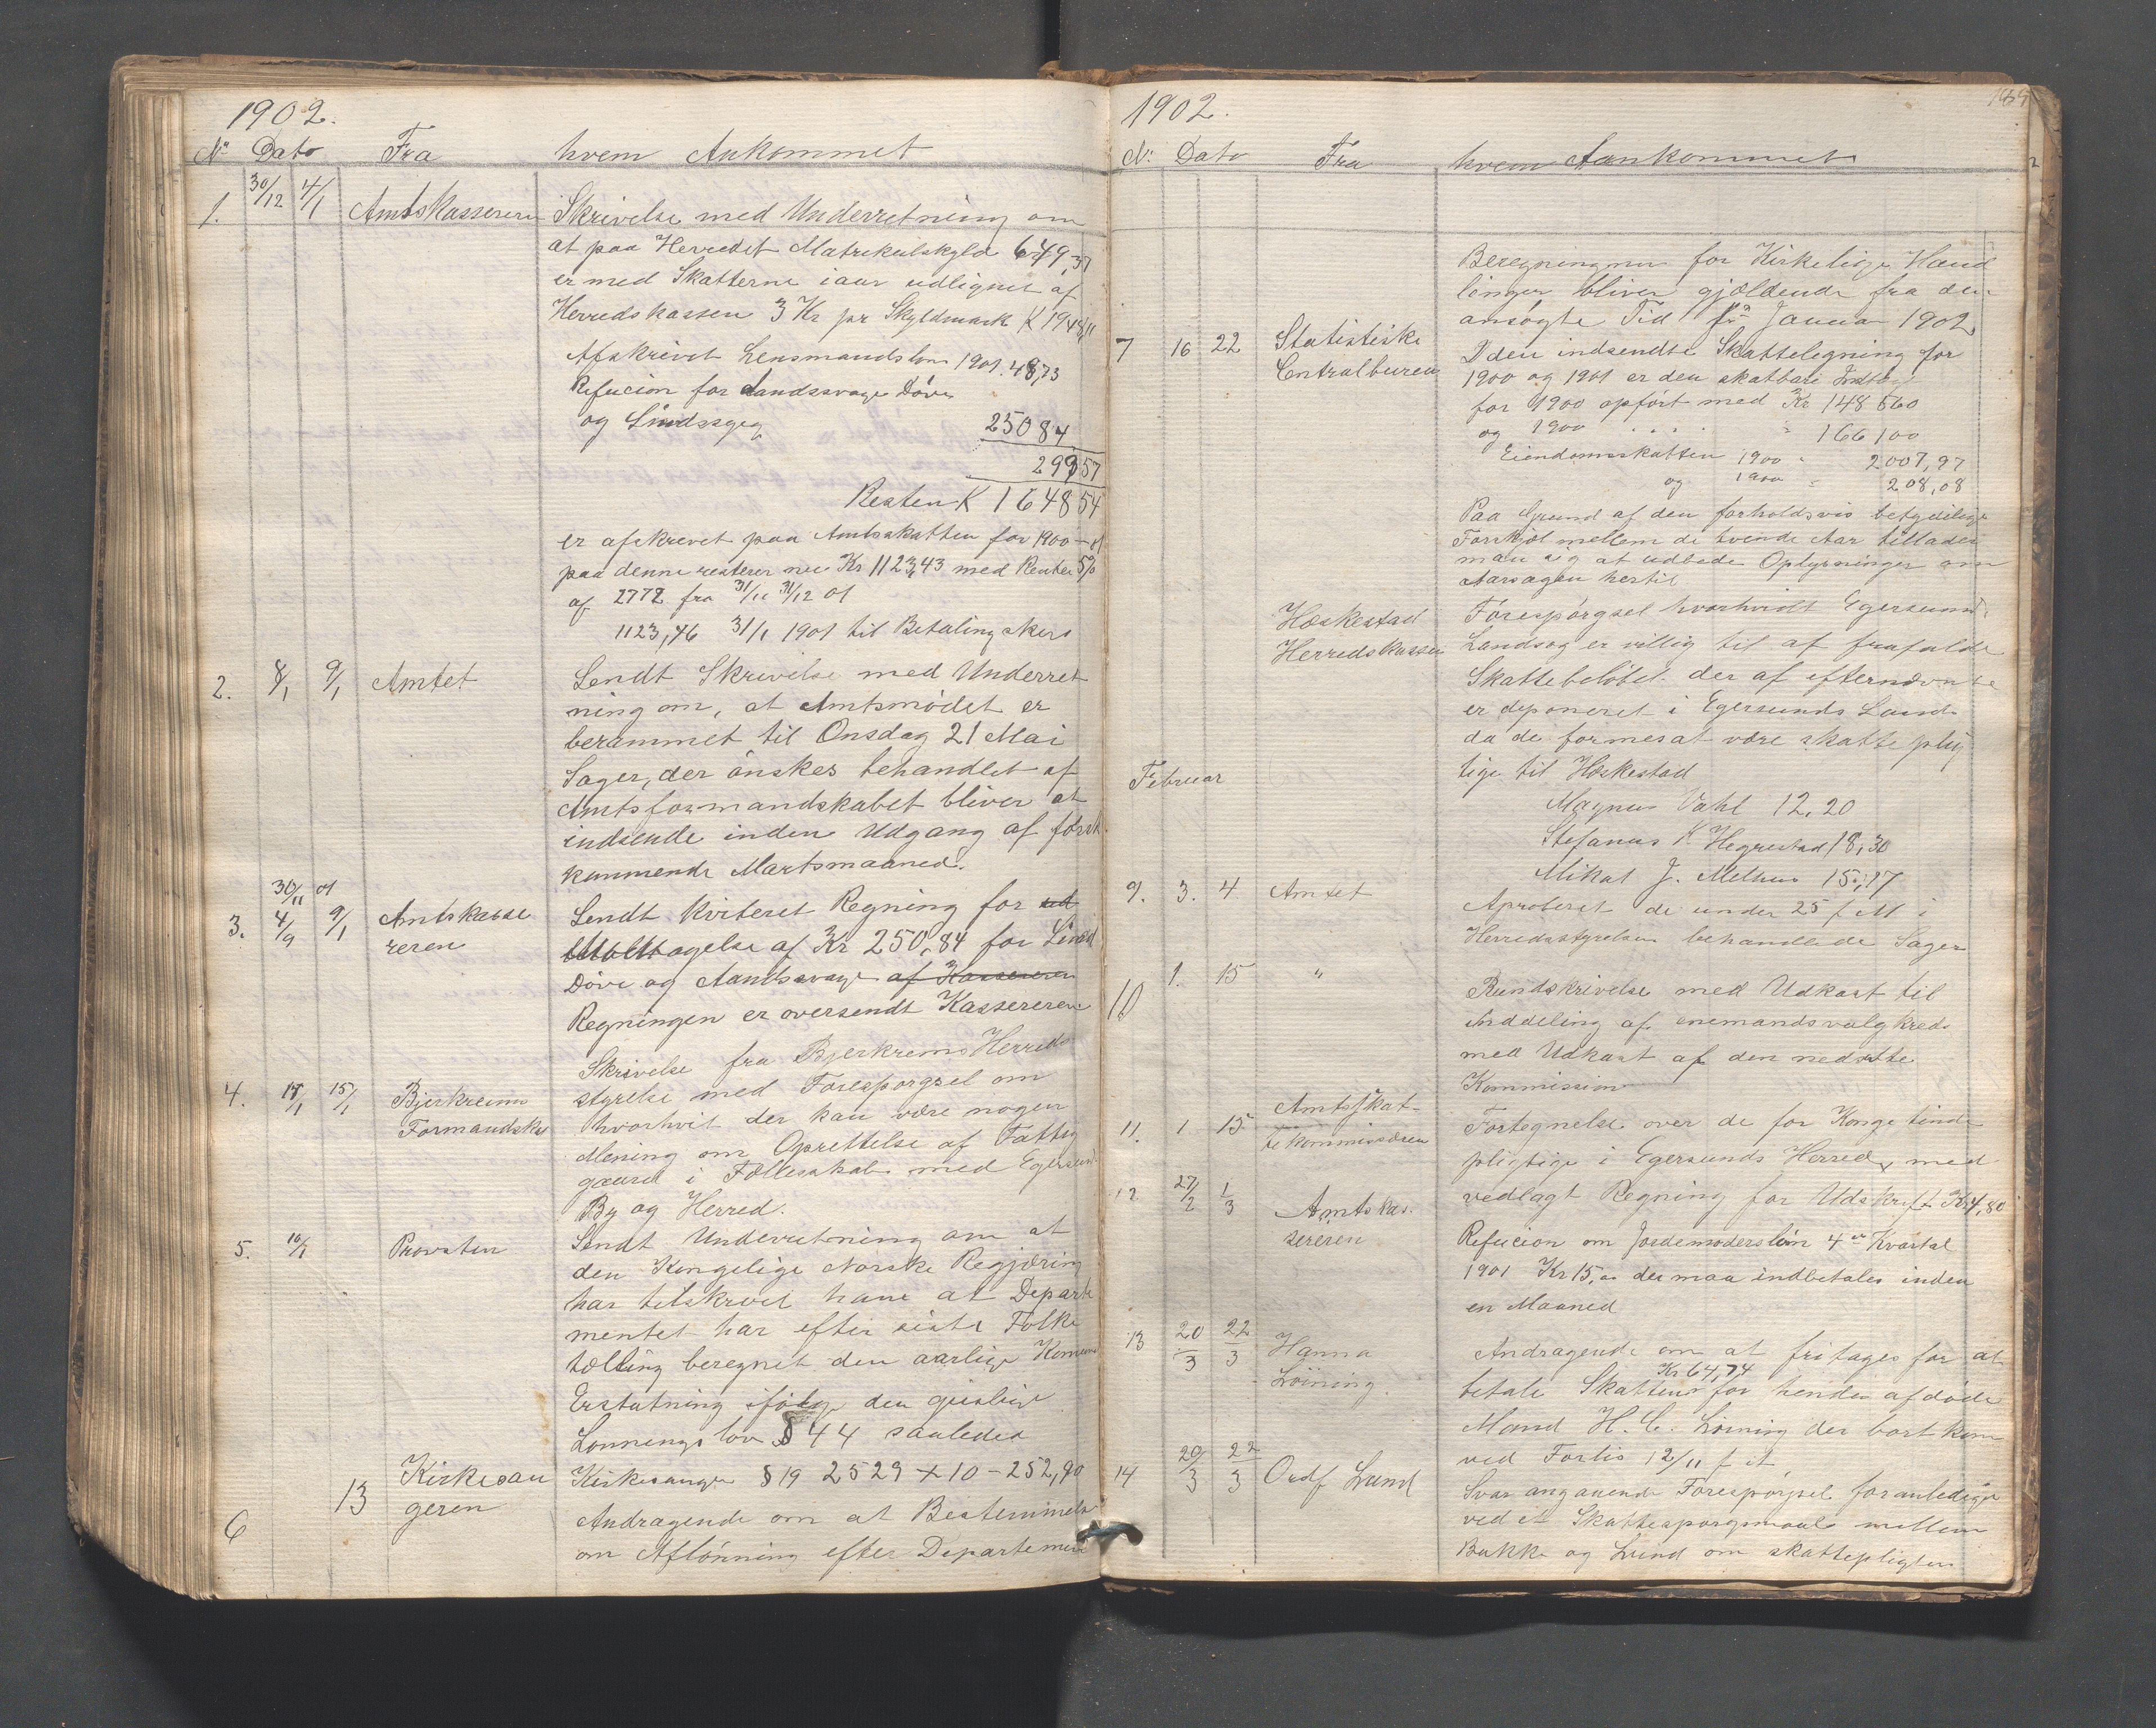 1902.
No Dato Fra hvem Ankommet
1. 30/12 4/1 Amtskassereren Skrivelse med Underretning om
at paa Herredet Matrikulskyld 649,37
er med Skatterne iaar udlignet af
Herredskassen 3 Kr pr Skyldmark K 1948,11
Afskrivet Lensmandsløn 1901. 48,73
Refucion for Aandssvage Døve
og Sindssyge 250 84
299 57
Resten K 1648 54
er afskrevet paa Amtsskatten for 1900-01
paa denne resterer nu Kr 1123,43 med Renter 5%
af 2772 fra 31/12 01
1123,46 31/1 1901 til Betaling skeer
2. 8/1 9/1 Amtet Sendt Skrivelse med Underret
ning om, at Amtsmødet er
berammet til Onsdag 21 Mai
Sager, der ønskes behandlet af
Amtsformandskabet bliver at
indsende inden Udgang af først
kommende Martsmaaned.
30/11 01
3. 4/9 9/1 Amtskasse Sendt kviteret Regning for ud
reren agelse af Kr 250,84 for Sinds
Døve og Aandssvage af Kassereren
Regningen er oversendt Kassereren
Skrivelse fra Bjerkrems Herreds
4. 15/1 Bjerkreims styrelse med Forespørgsel om
Formandskab hvorhvit der kan være nogen
Mening om Oprettelse af Fattig
gaard i Fællesskab med Egersund
By og Herred.
5. 10/1 Provsten Sendt Underretning om at
den Kongelige Norske Regjæring
har tilskrevet ham at Departe
mentet har efter siste Folke
tælling beregnet den aarlige
Erstatning ifølge den geistlige
Lønningslov § 44 saaledes
13 Kirkesan Kirkesanger § 19 2529 x 10 - 252,90
6 geren Andragende om at Bestemmelse
om Aflønning efter Departemen
1902.
169
No. Dato Fra hvem Aankommet
Beregningen for Kirkelige Hand
linger bliver gjældende fra den
ansøgte Tid fra Januar 1902
7 16 22 Statistiske I den indsendte Skattelegning for
Centralbureau 1900 og 1901 er den skatbare Indtægt
for 1900 opført med Kr 148 560
og 1900 . . . . " 166 100
Eiendomsskatten 1900 " 2007,97
og 1900 " 208,08
Paa Grund af den forholdsvis betydelige
Forskjel mellem de tvende Aar tillader
man sig at udbede Oplysninger om
Aarsagen hertil
Heskestad Forespørgsel hvorhvidt Egersunds
Herredskasse Landsog er villig til af frafalde
Skattebeløbet der af efternævnte
er deponeret i Egersunds Land
da de formes at være skatteplig
Februar tige til Heskestad
Magnus Vahl 12,20
Stefanus K Hegrestad 18,30
Mikal J. Melhus 15,17
9. 3. 4 Amtet Aproberet de under 25 f M i
Herredsstyrelsen behandlede Sager
10 1. 15 " Rundskrivelse med Udkast til
Inddeling af enemandsvalgkreds
med Udkast af den nedsatte
Kommission
11. 1 15 Amtsskat- Fortegnelse over de for Konge tiende
tekommissæren pligtige i Egersunds Herred, med
vedlagt Regning for Udskrift Kr 4,80
12 27/2 1/3 Amtskas- Refucion om Jordemodersløn 4de Kvartal
sereren 1901 Kr 15,00 der maa indbetales inden
en Maaned
13 20/3 22/3 Hanna Andragende om at fritages for at
Kr 64,74
Løining. betale Skatten for hendes afdøde
Mand H. C. Løining der bortkom
ved Forlis 12/11 f A
14 20/3 22/3 Ordf Lund Svar angaaende Forespørgsel foranlediget
ved et Skattespørgsmaal mellem
Bakke og Lund om skattepligten